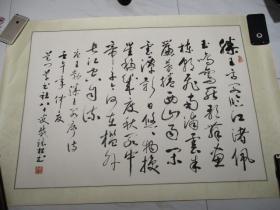 滕王高阁临江渚佩
玉鸣鸾罢歌舞画
栋朝飞南浦云朱
帘暮卷西山雨闲
云潭影日悠悠物换
星移几度秋阁中
帝子今何在槛外
长江空自流
唐王勃滕王阁序诗
壬午年仲夏
八十叟
书